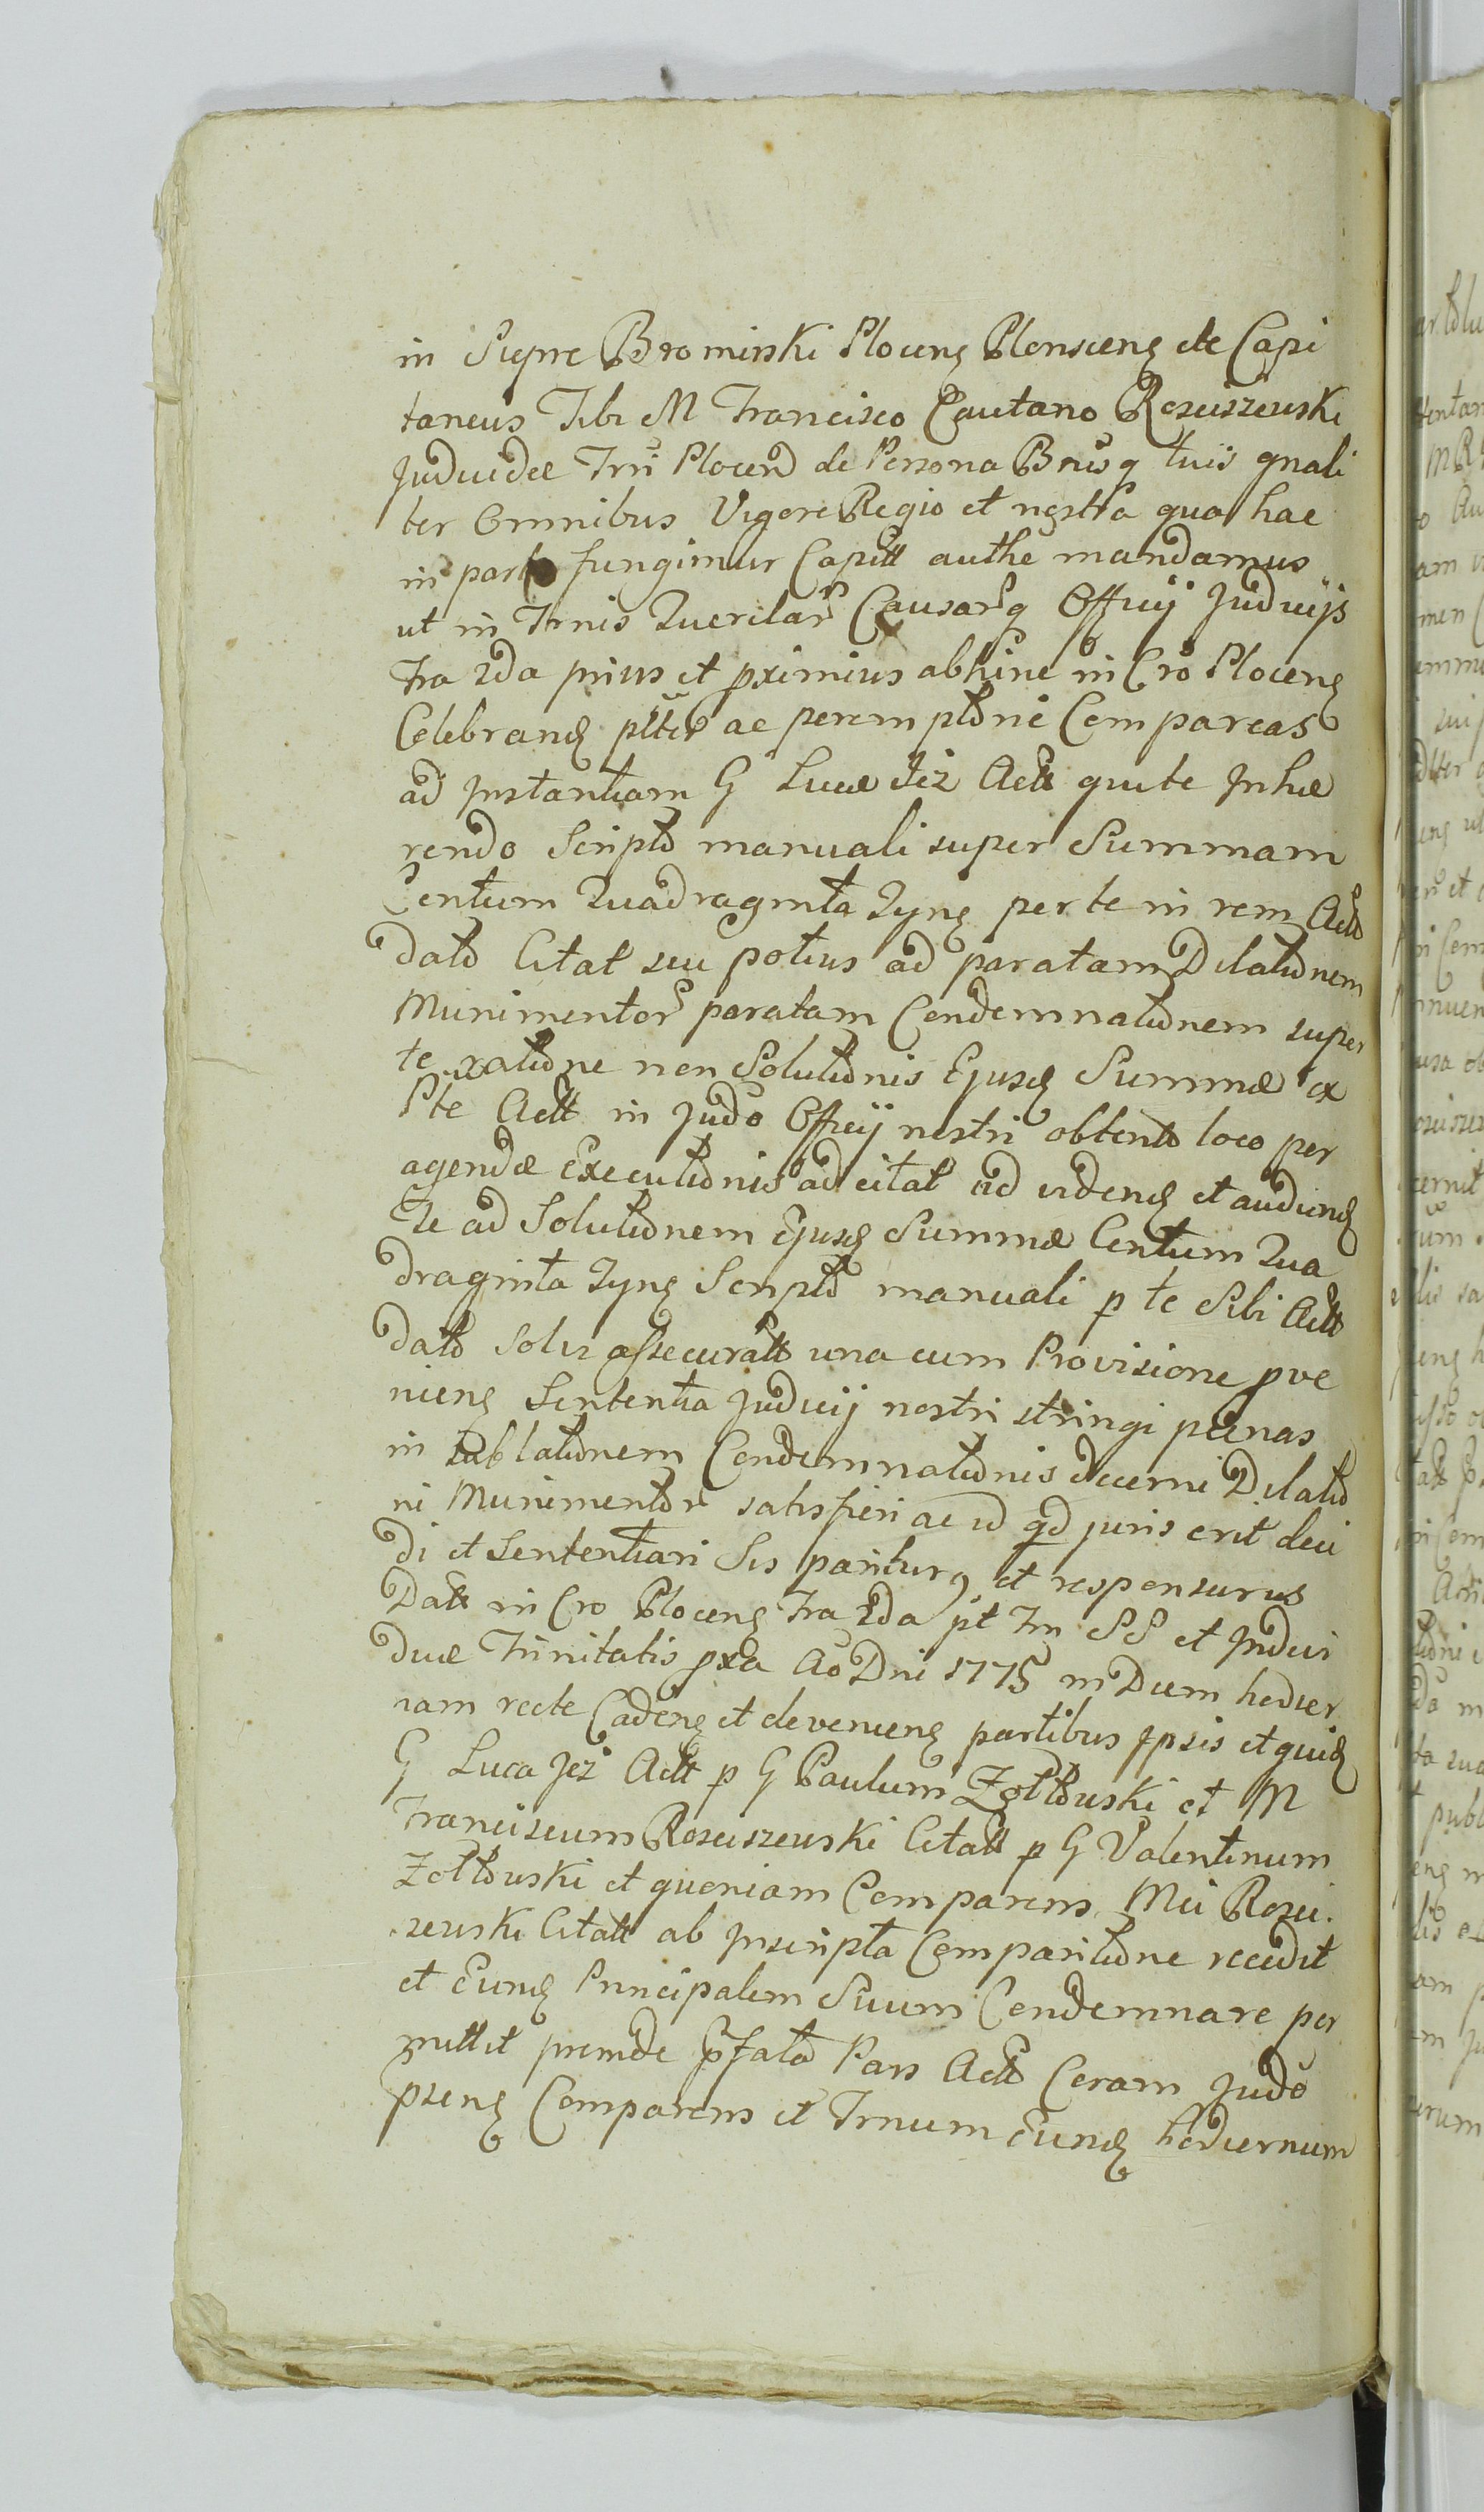 in Siepre Bromirski Plocens Plonscens etc Capi
taneus Tibi M Francisco Caietano Rosciszewski
Judicidae Trri Plocen de Persona Bnisq tuis gnali
ter Omnibus Vigore Regio et nostra qua hac
in parte fungimur Capitt authe mandamus
ut in Trnis Querelar Causarq Officij Judicijs
Fra 2da prius et pximius abhinc in Cro Plocens
Celebrand ptter ac peremptorie Compareas
ad Instantiam G Lucae Jez Act qui te Inhae
rendo Scripto manuali super Summam
Centum Quadraginta Tynf per te in rem Act
dato Citat seu potius ad paratam Dilationem
Munimentor paratam Condemnationem super
te ratione non Solutionis Ejusd Summae ex
Pte Act in Judo Officij nostri obtent loco per
agendae Executionis adcitat ad vidend et audiend
Te ad Solutionem Ejusd Summae Centum Qua
draginta Tynf Scripto manuali p te Sibi Act
dato Solvi assecuratt una cum Provisione pve
niens Sententia Judicij nostri stringi paenas
in sublationem Condemnationis decerni Dilatio
ni Munimentor satisfieri ac id qd juris erit deci
di et Sententiari Sis pariturq et responsurus
Datt in Cro Plocens Fra 2da pt Fm SS et Indivi
duae Trinitatis pxa Ao Dni 1775 in Diem hodier
nam recte Cadens et deveniens partibus Ipsis et quid
G Luca Jez Act p G Paulum Zołtowski et M
Franciscum Rosciszewski Citatt p G Valentinum
Zołtowski et quoniam Comparens Mci Rosci
szewski Citatt ab Inscripta Comparitione recedit
et Eund Principalem Suum Condemnare per
mittit proinde pfata Pars Act Coram Judo
psens Comparens et Trnum Eund hodiernum